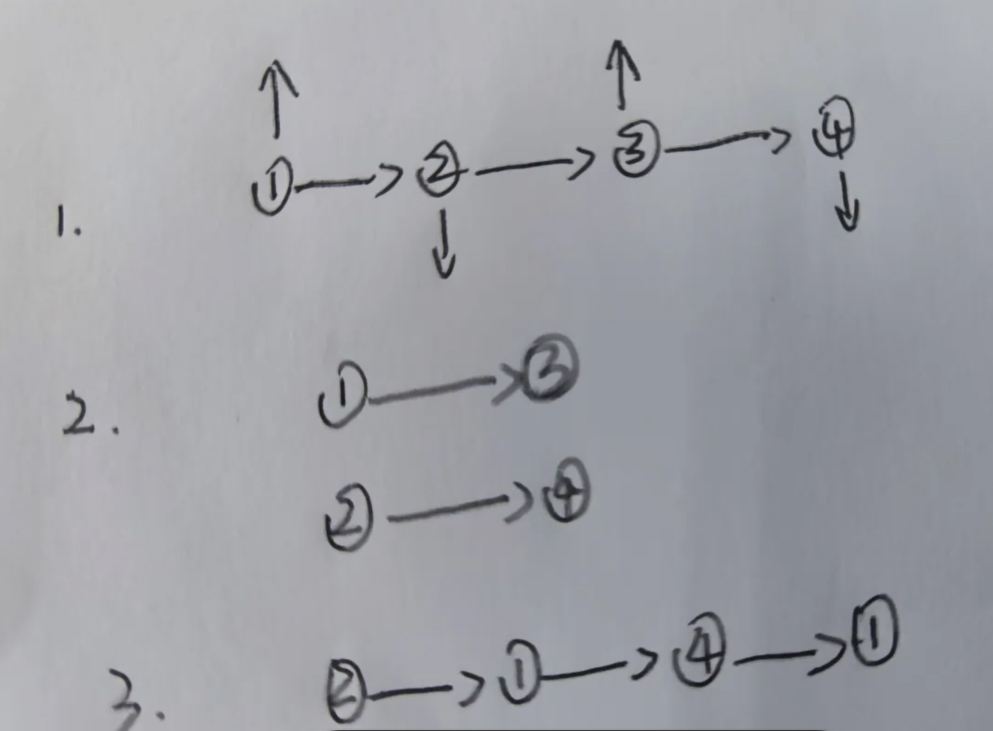 ↑ ↑
1. ① → ② → ③ → ④
↓ ↓
2. ① → ③
② → ④
3. ② → ① → ④ → ①